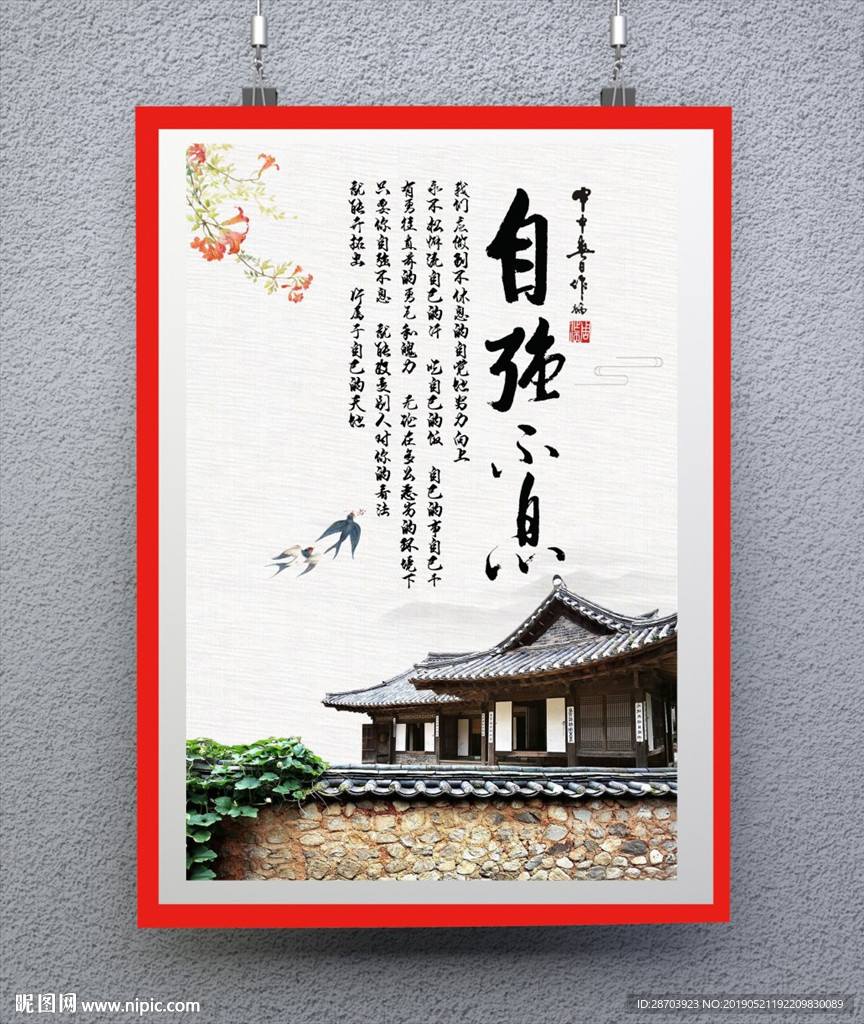 自强不息
我们应做到不休息的自觉地努力向上
永不松懈流自己的汗 吃自己的饭 自己的事自己干
有勇往直前的勇气和魄力 无论在多么恶劣的环境下
只要你自强不息 就能改变别人对你的看法
就能开拓出 所属于自己的天地
昵图网 www.nipic.com
ID:28703923 NO:20190521192209830089